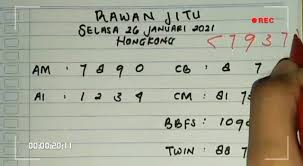 RAWAN JITU
SELASA 26 JANUARI 2021
HONGKONG
REC
< 7 9 3 7
AM : 7 8 9 0
CB : 8 7
AI : 1 2 3 4
CM : 81 7
BBFS : 109
TWIN : 88 7
00:00:20:11